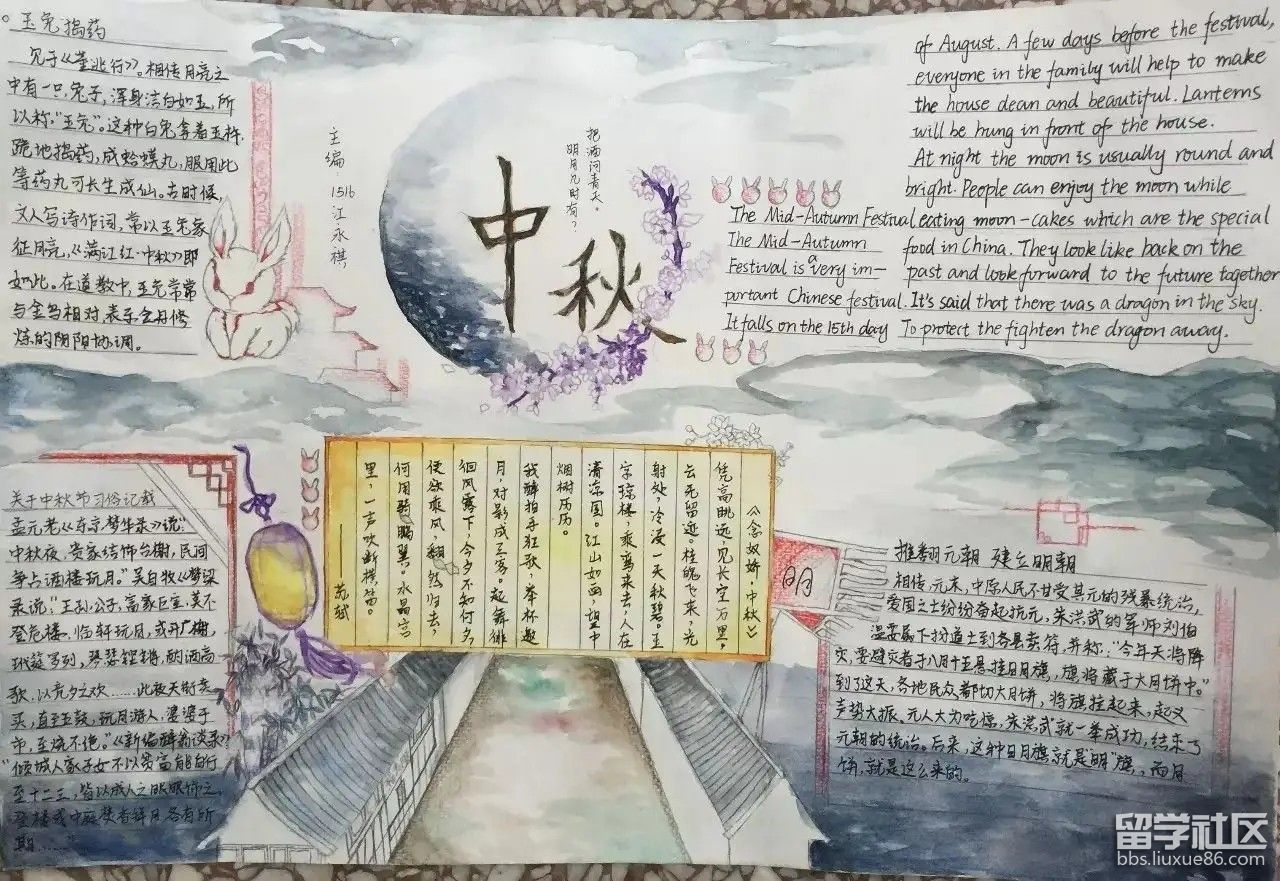 玉兔捣药
见于《董逃行》。相传月亮之
中有一只兔子，浑身洁白如玉，所
以称"玉兔"。这种白兔拿着玉杵，
跪地捣药，成蛤蟆丸，服用此
等药丸可长生成仙。古时候，
文人写诗作词，常以玉兔象
征月亮，《满江红·中秋》即
如此。在道教中，玉兔常常
与金乌相对，表示金丹修
炼的阴阳协调。
主编：1516江永棋
明月几时有？
把酒问青天。
中秋
The Mid-Autumn Festival
The Mid-Autumn
Festival is a very im-
portant Chinese festival.
It falls on the 15th day
of August. A few days before the festival,
everyone in the family will help to make
the house dean and beautiful. Lanterns
will be hung in front of the house.
At night the moon is usually round and
bright. People can enjoy the moon while
eating moon-cakes which are the special
food in China. They look like back on the
past and look forward to the future together
It's said that there was a dragon in the sky.
To protect the fighten the dragon away.
《念奴娇·中秋》
凭高眺远，见长空万里，
云无留迹。桂魄飞来，光
射处，冷浸一天秋碧。玉
宇琼楼，乘鸾来去，人在
清凉国。江山如画，望中
烟树历历。
我醉拍手狂歌，举杯邀
月，对影成三客。起舞徘
徊风露下，今夕不知何夕，
便欲乘风，翻然归去，
何用骑鹏翼。水晶宫
里，一声吹断横笛。
——苏轼
关于中秋节习俗记载
孟元老《东京梦华录》说："
中秋夜，贵家结饰台榭，民间
争占酒楼玩月。"吴自牧《梦梁
录说："王孙公子，富家巨室，莫不
登危楼，临轩玩月，或开广榭，
玳筵罗列，琴瑟铿锵，酌酒高
歌，以竟夕之欢……此夜天街卖
买，直至五鼓，玩月游人，婆娑于
市，至烧不绝。"《新编醉翁谈录》
"倾城人家子女不以贫富能自行
至十二三，皆以成人之服服饰之，
登楼或中庭焚香拜月各有所
期……"
明
推翻元朝 建立明朝
相传，元末，中原人民不甘受其元的残暴统治，
爱国之士纷纷奋起抗元，朱洪武的军师刘伯
温耍属下扮道士到各县卖符，并称："今年天将降
灾，要避灾者于八月十五悬挂日月旗，旗将藏于大月饼中。"
到了这天，各地民众都切大月饼，将旗挂起来，起义
声势大振，元人大为吃惊，朱洪武就一举成功，结束了
元朝的统治。后来，这种日月旗，就是"明"旗，而月
饼，就是这么来的。
留学社区
bbs.liuxue86.com